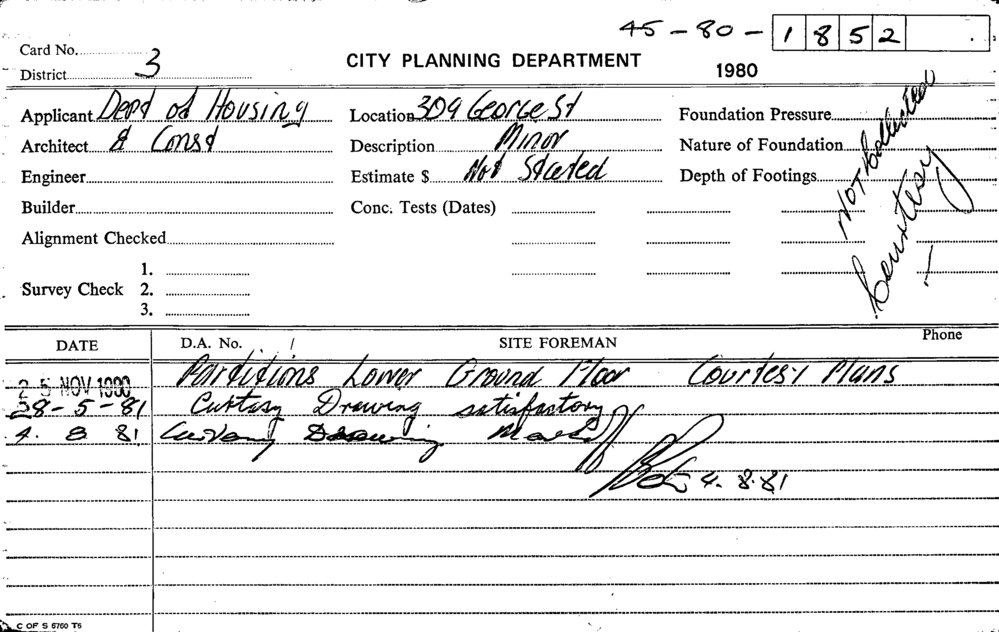 45-80-1852
Card No.
District 3
CITY PLANNING DEPARTMENT
1980
Applicant Dept of Housing
Architect & Const
Engineer
Builder
Alignment Checked
Survey Check 1.
2.
3.
Location 309 George St
Description Minor
Estimate $ Not Started
Conc. Tests (Dates)
Foundation Pressure
Nature of Foundation
Depth of Footings
Not Collected
Courtesy
DATE D.A. No. SITE FOREMAN Phone
25 NOV 1980 Partitions Lower Ground Floor Courtesy Plans
28-5-81 Curtasy Drawing satisfactory
4. 8 81 Drawing
4.8.81
C OF S 6760 T6